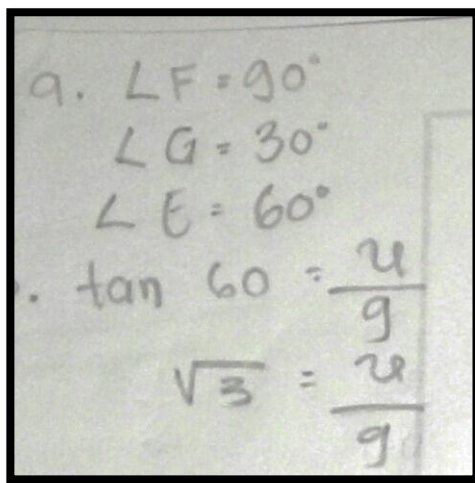 a. ∠F = 90°
∠G = 30°
∠E = 60°
. tan 60 = u/g
√3 = u/g